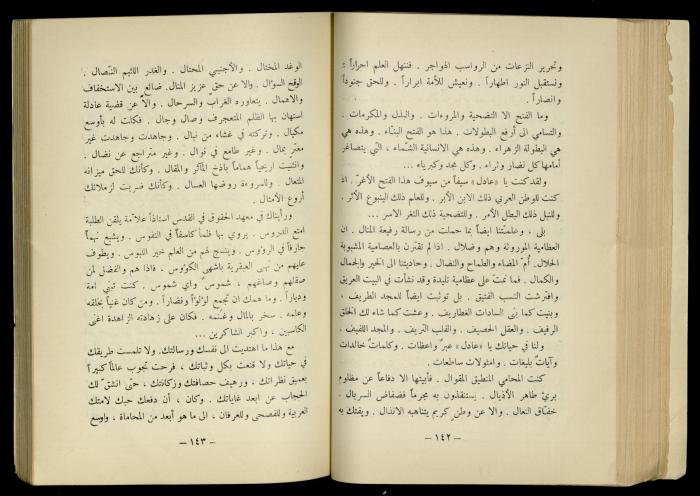 وتحرير النزعات من الرواسب الهواجر . فننهل العلم احراراً ؛
ونستقبل النور اطهاراً . ونعيش للأمة ابراراً . وللحق جنوداً
وانصاراً .
وما الفتح الا التضحية والمروءات . والبذل والمكرمات .
والتسامي الى أرفع البطولات . هذا هو الفتح البنّاء . وهذه هي
هي البطولة الزهراء . وهذه هي الانسانية الشمّاء ، التي يتصاغر
أمامها كل نضار وثراء . وكل مجد وكبرياء ...
ولقد كنت يا «عادل» سيفاً من سيوف هذا الفتح الأغر . اذ
كنت للوطن العربي ذلك الابن الأبر . وللعلم ذلك الينبوع الأثر .
وللنبل ذلك البطل الأمر . وللتضحية ذلك الثغر الاسر ...
بلى ، وعلمتنا ايضاً بما حملت من رسالة رفيعة المثال . ان
العظامية الموروثة وهم وضلال . اذا لم تقترن بالعصامية المشبوبة
الحلال . أمّ المضاء والطماح والنضال . وحاديتنا الى الخير والجمال
والكمال . فما نمت على عظامية تليدة وقد نشأت في البيت العريق
وافترشت النسب الفتيق . بل توثبت ايضاً للمجد الطريف ،
وبنيت كما بنى السادات الغطاريف . وعشت كما شاء لك الخلق
الرفيف . والعقل الحصيف . والقلب الشريف . والمجد اللفيف .
ولنا في حياتك يا «عادل» عبر وعظات . وكلمات خالدات
وآيات بليغات . وامثولات ساطعات .
كنت المحامي المنطيق المقوال . فأبيتها الا دفاعاً عن مظلوم
بريّ طاهر الأذيال . يستنقذون به مجرماً فضفاض السربال .
خفاق النعال . والا عن وطن كريم يتناهبه الانذال . ويفتك به
— ١٤٢ —
الوغد المختال . والأجنبي المحتال . والغدر اللئيم النصال .
الوقح السؤال . والا عن حق عزيز المنال . ضائع بين الاستخفاف
والاهمال . يتعاوره الغراب والسرحال . والا عن قضية عادلة
استهان بها الظلم المتعجرف وصال وجال . فكانت له بأوسع
مكيال . وتركته في غشاء من نبال . وجاهدت وجاهدت غير
مغتر بمال . وغير طامع في نوال . وغير متراجع عن نضال .
وانثنيت اريحياً هماماً باذخ المآثر والمقال . وكأنك للحق ميزانه
المتعال . وللمروءة روضها العسال . وكأنك ضربت لزملائك
أروع الأمثال .
ورأيناك في معهد الحقوق في القدس استاذاً علامة يلقن الطلبة
امتع الدروس . يروي بها ظمأ كاسفاً في النفوس . ويشبع نهماً
جارفاً في الرؤوس . وينسج لهم من العلم خير اللبوس . ويطوف
عليهم من نهى العبقرية بأشهى الكؤوس . فاذا هم والفضل لمن
صقلهم وصاغهم ، شموس وأي شموس . كنت تبني امة
ودياراً . وما همك ان تجمع لؤلؤاً ونضاراً . ومن كان غنياً بخلقه
وعلمه . سخر بالمال وغنمه . فكان على زهادته الزاهدة اغنى
الكاسبين ، واكبر الشاكرين ...
مع هذا ما اهتديت الى نفسك ورسالتك . ولا تلمست طريقك
في حياتك ولا قنعت بكل وثباتك ، فرحت تجوب عالماً كبيراً
بعميق نظراتك . ورهيف حصافتك وزكانتك ، حتى انشق لك
الحجاب عن ابعد غاياتك . وكان ، أن دفعك حبك لامتك
العربية وللفصحى وللعرفان ، الى ما هو أبعد من المحاماة ، واوسع
— ١٤٣ —